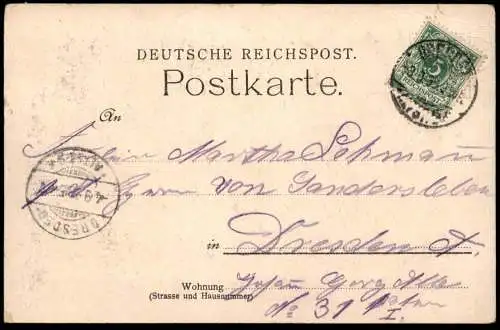 DEUTSCHE REICHSPOST.
Postkarte.
An
Fräulein Martha Lehmann
von Sandersleben
in Dresden A.
Wohnung
(Strasse und Hausnummer)
Johann Georg Allee
No 31
I.
5
DRESDEN